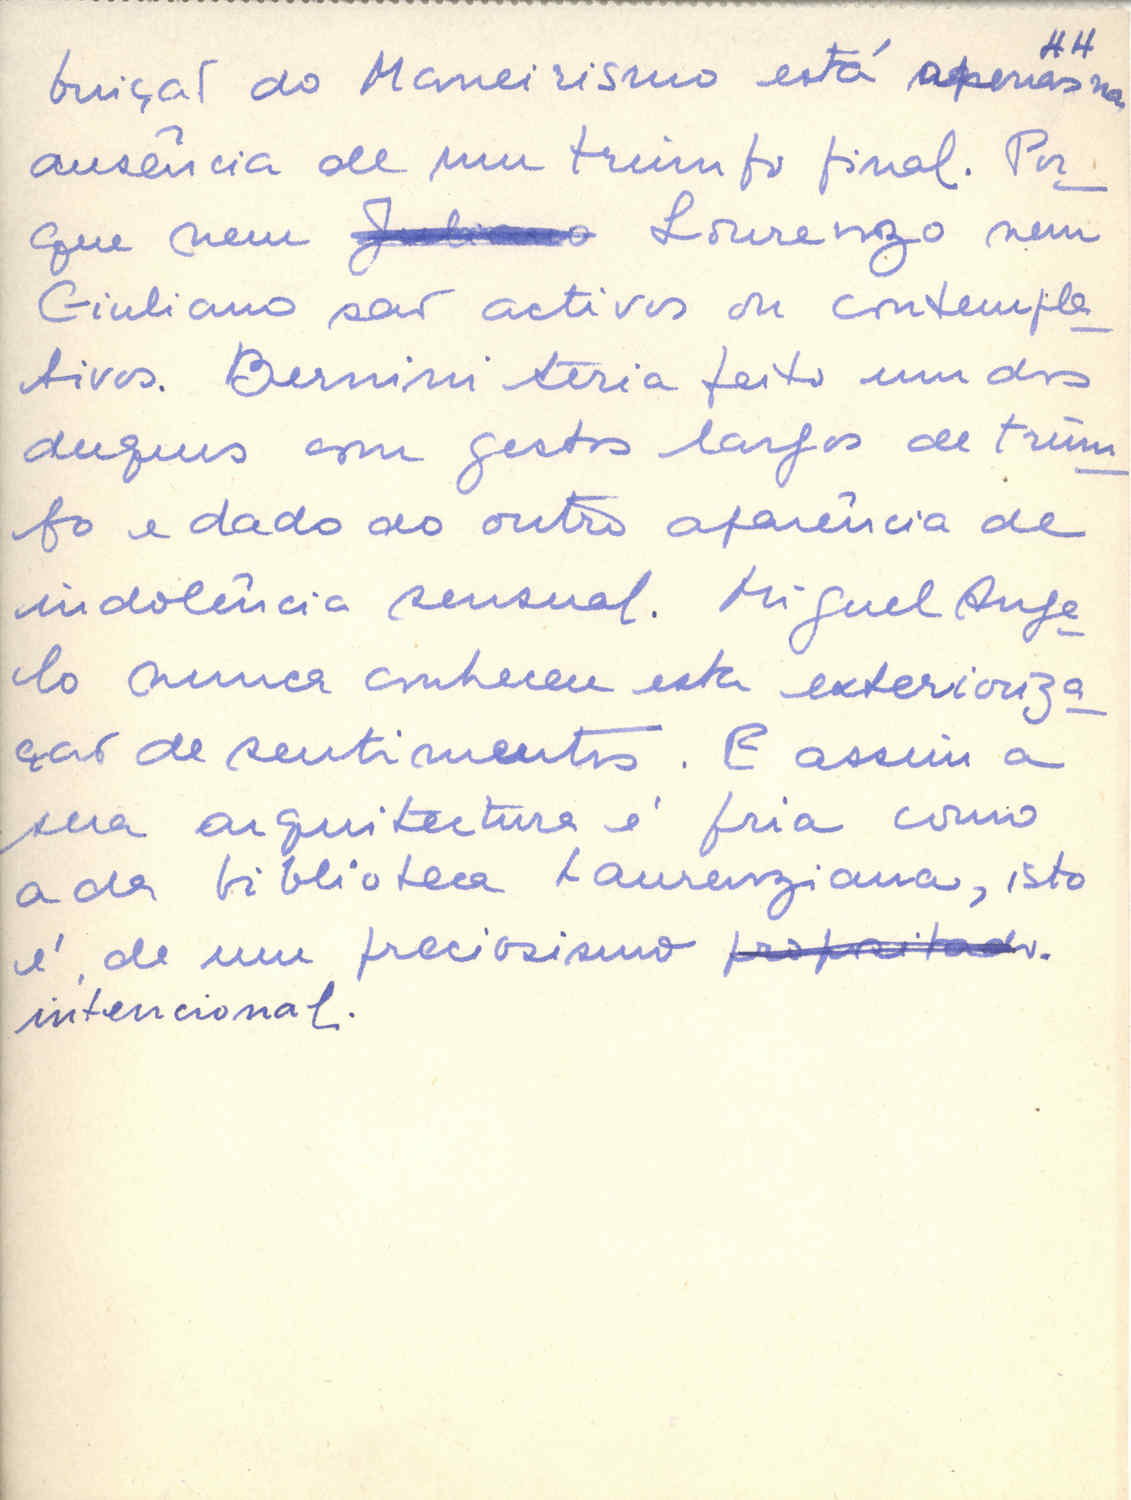 44
buição do Maneirismo está apenas na
ausência de um triunfo final. Por_
que nem ~~Juliano~~ Lourenzo nem
Giuliano são activos ou contempla_
tivos. Bernini teria feito um dos
duques com gestos largos de triun_
fo e dado ao outro aparência de
indolência sensual. Miguel Ange_
lo nunca conheceu esta exterioriza_
ção de sentimentos. E assim a
sua arquitectura é fria como
a da biblioteca Laurenziana, isto
é, de um preciosismo ~~propositado~~.
intencional.